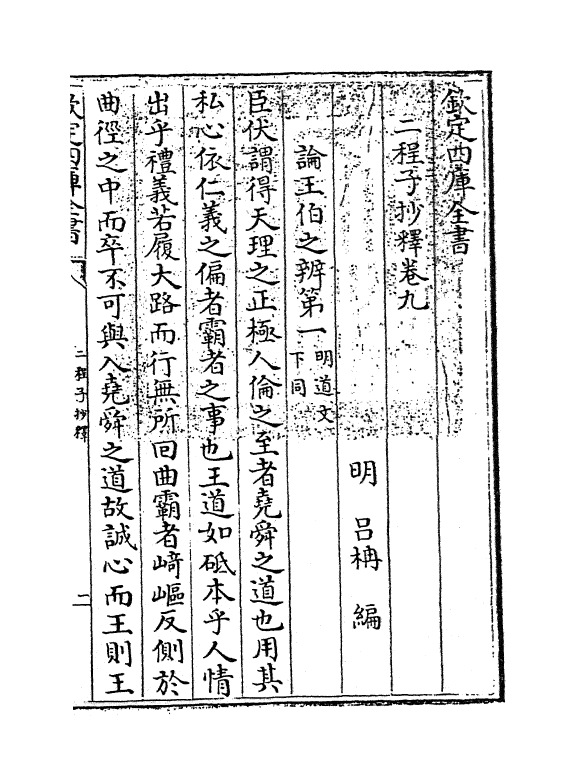 欽定四庫全書
二程子抄釋卷九
明 呂柟 編
論王伯之辨第一明道文下同
臣伏謂得天理之正極人倫之至者堯舜之道也用其
私心依仁義之偏者霸者之事也王道如砥本乎人情
出乎禮義若履大路而行無所回曲霸者﨑嶇反側於
曲徑之中而卒不可與入堯舜之道故誠心而王則王
欽定四庫全書
二程子抄釋
二